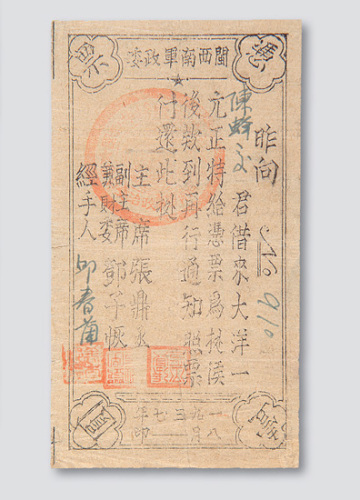 閩西南軍政委
票
昨向
陳 君借來大洋一
元正特給憑票為據俟
後欵到再行通知照票
付還此據
主席張鼎丞
副主席
兼財委 鄧子恢
經手人 邱春
910
一九三七年
八月 印
圓